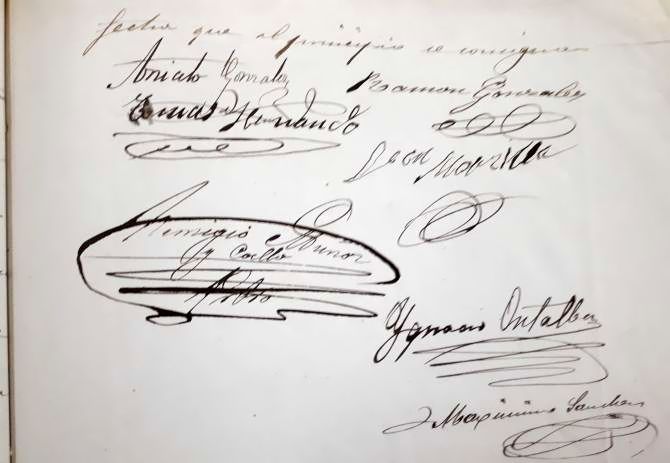 fecha que al principio se consigna
Aniceto Gonzalez
Ramon Gonzalez
Tomas Hernando
Leon Morilla
Remigio Muñoz
y Coello
Ygnacio Ontalba
Maximino Sanchez